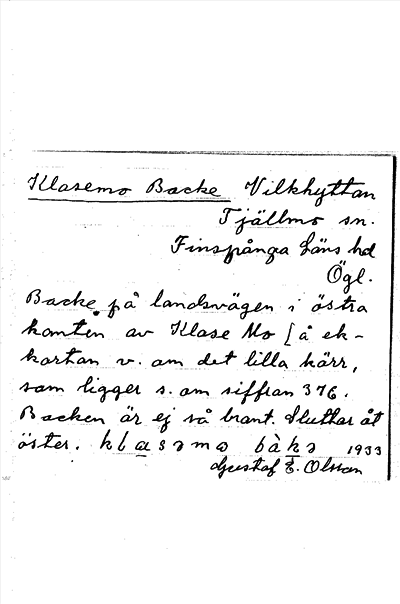 Klasemo Backe Vilkhyttan
Tjällmo sn.
Finspånga läns hd
Ögl.
Backe på landsvägen i östra
kanten av Klase Mo [å ek-
kartan v. om det lilla kärr,
som ligger s. om siffran 376.
Backen är ej så brant. Sluttar åt
öster. klasəmo bàkə 1933
Gustaf E. Olson